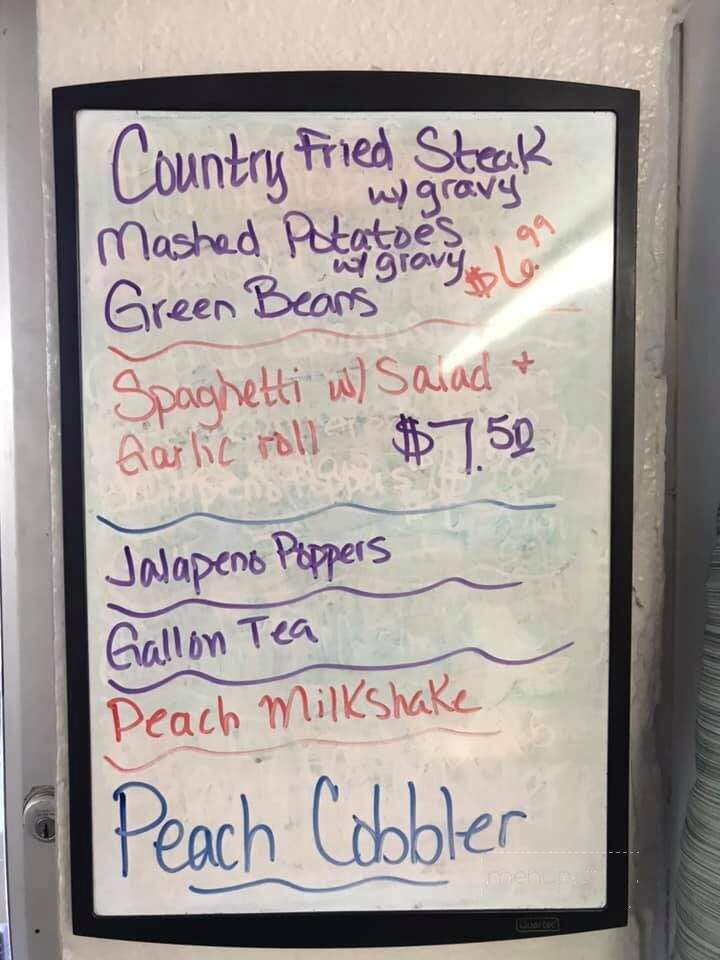 Country Fried Steak
w/ gravy
Mashed Potatoes
w/ gravy $6.99
Green Beans
Spaghetti w/ Salad +
Garlic roll $7.50
Jalapeno Poppers
Gallon Tea
Peach Milkshake
Peach Cobbler
Quartet